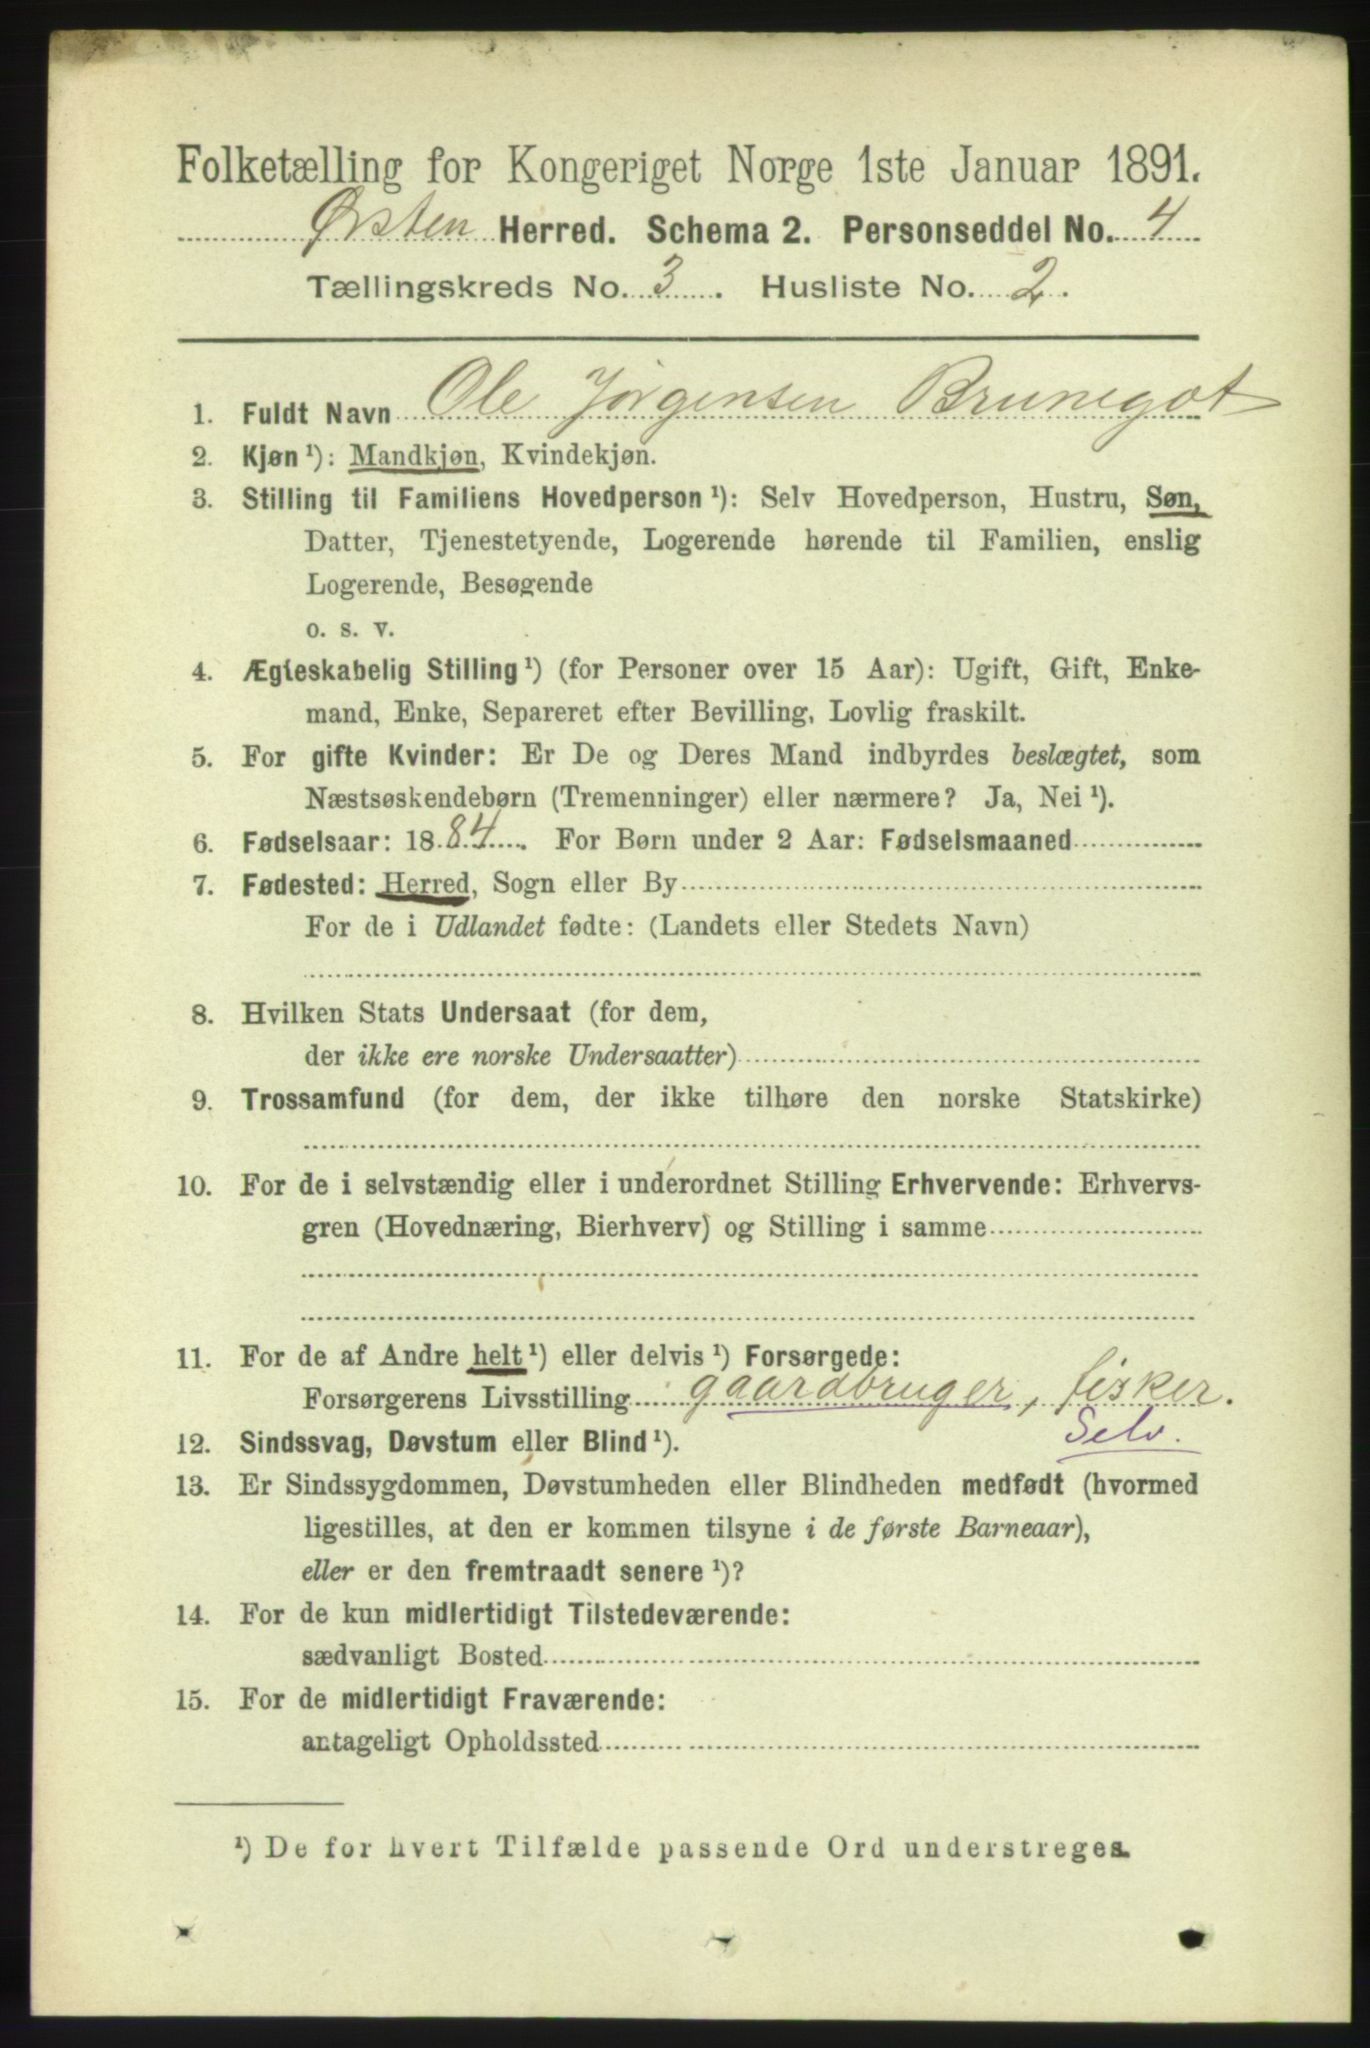 Folketælling for Kongeriget Norge 1ste Januar 1891.
Ørsten Herred. Schema 2. Personseddel No. 4
Tællingskreds No. 3. Husliste No. 2.
1. Fuldt Navn Ole Jørgensen Brunegot
2. Kjøn ¹): Mandkjøn, Kvindekjøn.
3. Stilling til Familiens Hovedperson ¹): Selv Hovedperson, Hustru, Søn,
Datter, Tjenestetyende, Logerende hørende til Familien, enslig
Logerende, Besøgende
o. s. v.
4. Ægteskabelig Stilling ¹) (for Personer over 15 Aar): Ugift, Gift, Enke-
mand, Enke, Separeret efter Bevilling, Lovlig fraskilt.
5. For gifte Kvinder: Er De og Deres Mand indbyrdes beslægtet, som
Næstsøskendebørn (Tremenninger) eller nærmere? Ja, Nei ¹).
6. Fødselsaar: 1884. For Børn under 2 Aar: Fødselsmaaned
7. Fødested: Herred, Sogn eller By
For de i Udlandet fødte: (Landets eller Stedets Navn)
8. Hvilken Stats Undersaat (for dem,
der ikke ere norske Undersaatter)
9. Trossamfund (for dem, der ikke tilhøre den norske Statskirke)
10. For de i selvstændig eller i underordnet Stilling Erhvervende: Erhvervs-
gren (Hovednæring, Bierhverv) og Stilling i samme
11. For de af Andre helt ¹) eller delvis ¹) Forsørgede:
Forsørgerens Livsstilling gaardbruger, fisker.
12. Sindssvag, Døvstum eller Blind ¹). Selv.
13. Er Sindssygdommen, Døvstumheden eller Blindheden medfødt (hvormed
ligestilles, at den er kommen tilsyne i de første Barneaar),
eller er den fremtraadt senere ¹)?
14. For de kun midlertidigt Tilstedeværende:
sædvanligt Bosted
15. For de midlertidigt Fraværende:
antageligt Opholdssted
¹) De for hvert Tilfælde passende Ord understreges.